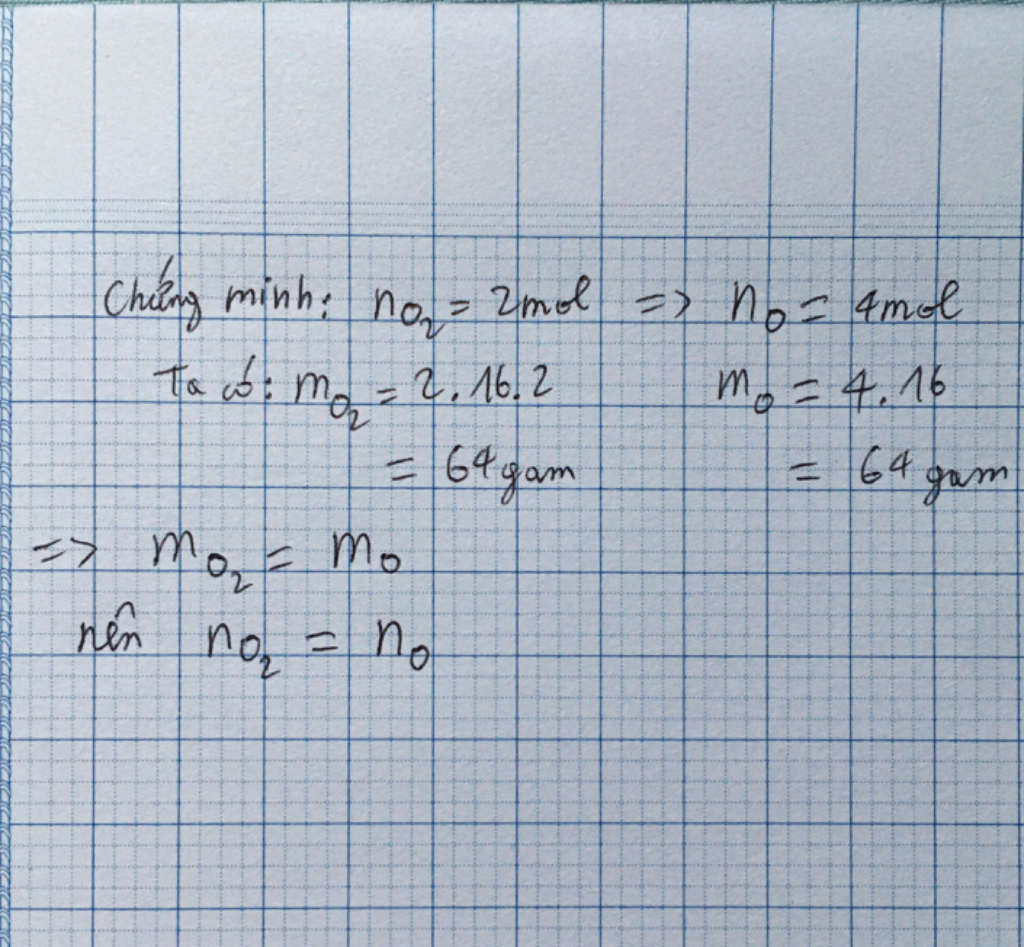 Chứng minh: nO₂ = 2mol => nO = 4mol
Ta có: mO₂ = 2.16.2 mO = 4.16
= 64gam = 64gam
=> mO₂ = mO
nên nO₂ = nO